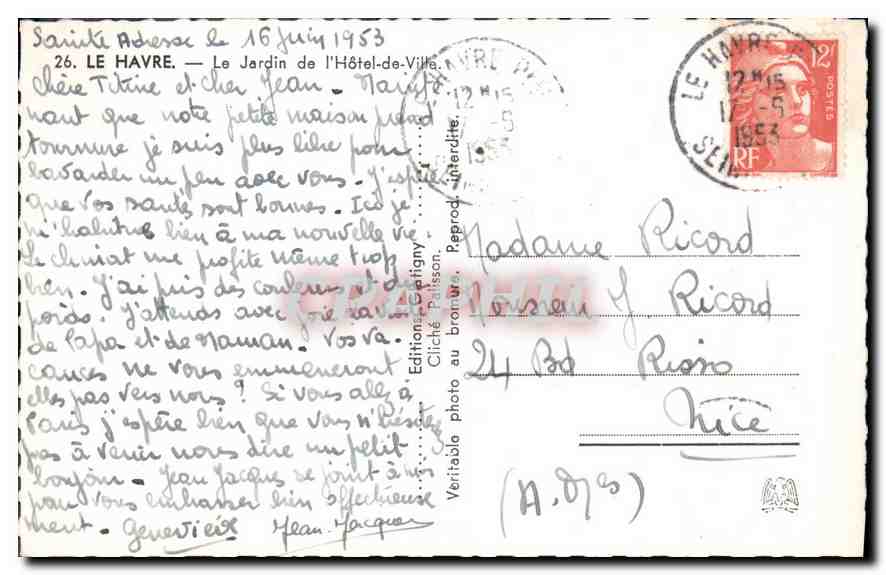 Sainte Adresse le 16 Juin 1953
26. LE HAVRE. — Le Jardin de l'Hôtel-de-Ville.
Chère Titine et cher Jean - Mainte
nant que notre petite maison prend
tournure je suis plus libre pour
bavarder un peu avec vous. J'espère
que vos santés sont bonnes. Ici je
m'habitue bien à ma nouvelle vie.
Le climat me profite même trop
bien. J'ai pris des couleurs et du
poids. J'attends avec joie la
de Papa et de Maman. Vos va
cances ne vous emmeneront
elles pas vers nous? Si vous allez à
Paris j'espère bien que vous n'hésitez
pas à venir nous dire un petit
bonjour. Jean Jacques se joint à moi
pour vous embrasser bien affectueuse
ment. Geneviève Jean-Jacques
Editions Gatigny
Cliché Palisson.
Veritable photo au bromure. Reprod. interdite.
LE HAVRE
12 H 15
17 -6
1953
SEINE
12F
POSTES
RF
Madame Ricord
Monsieur J. Ricord
24 Bd Risso
Nice
(A. Mes)
CPARAMA